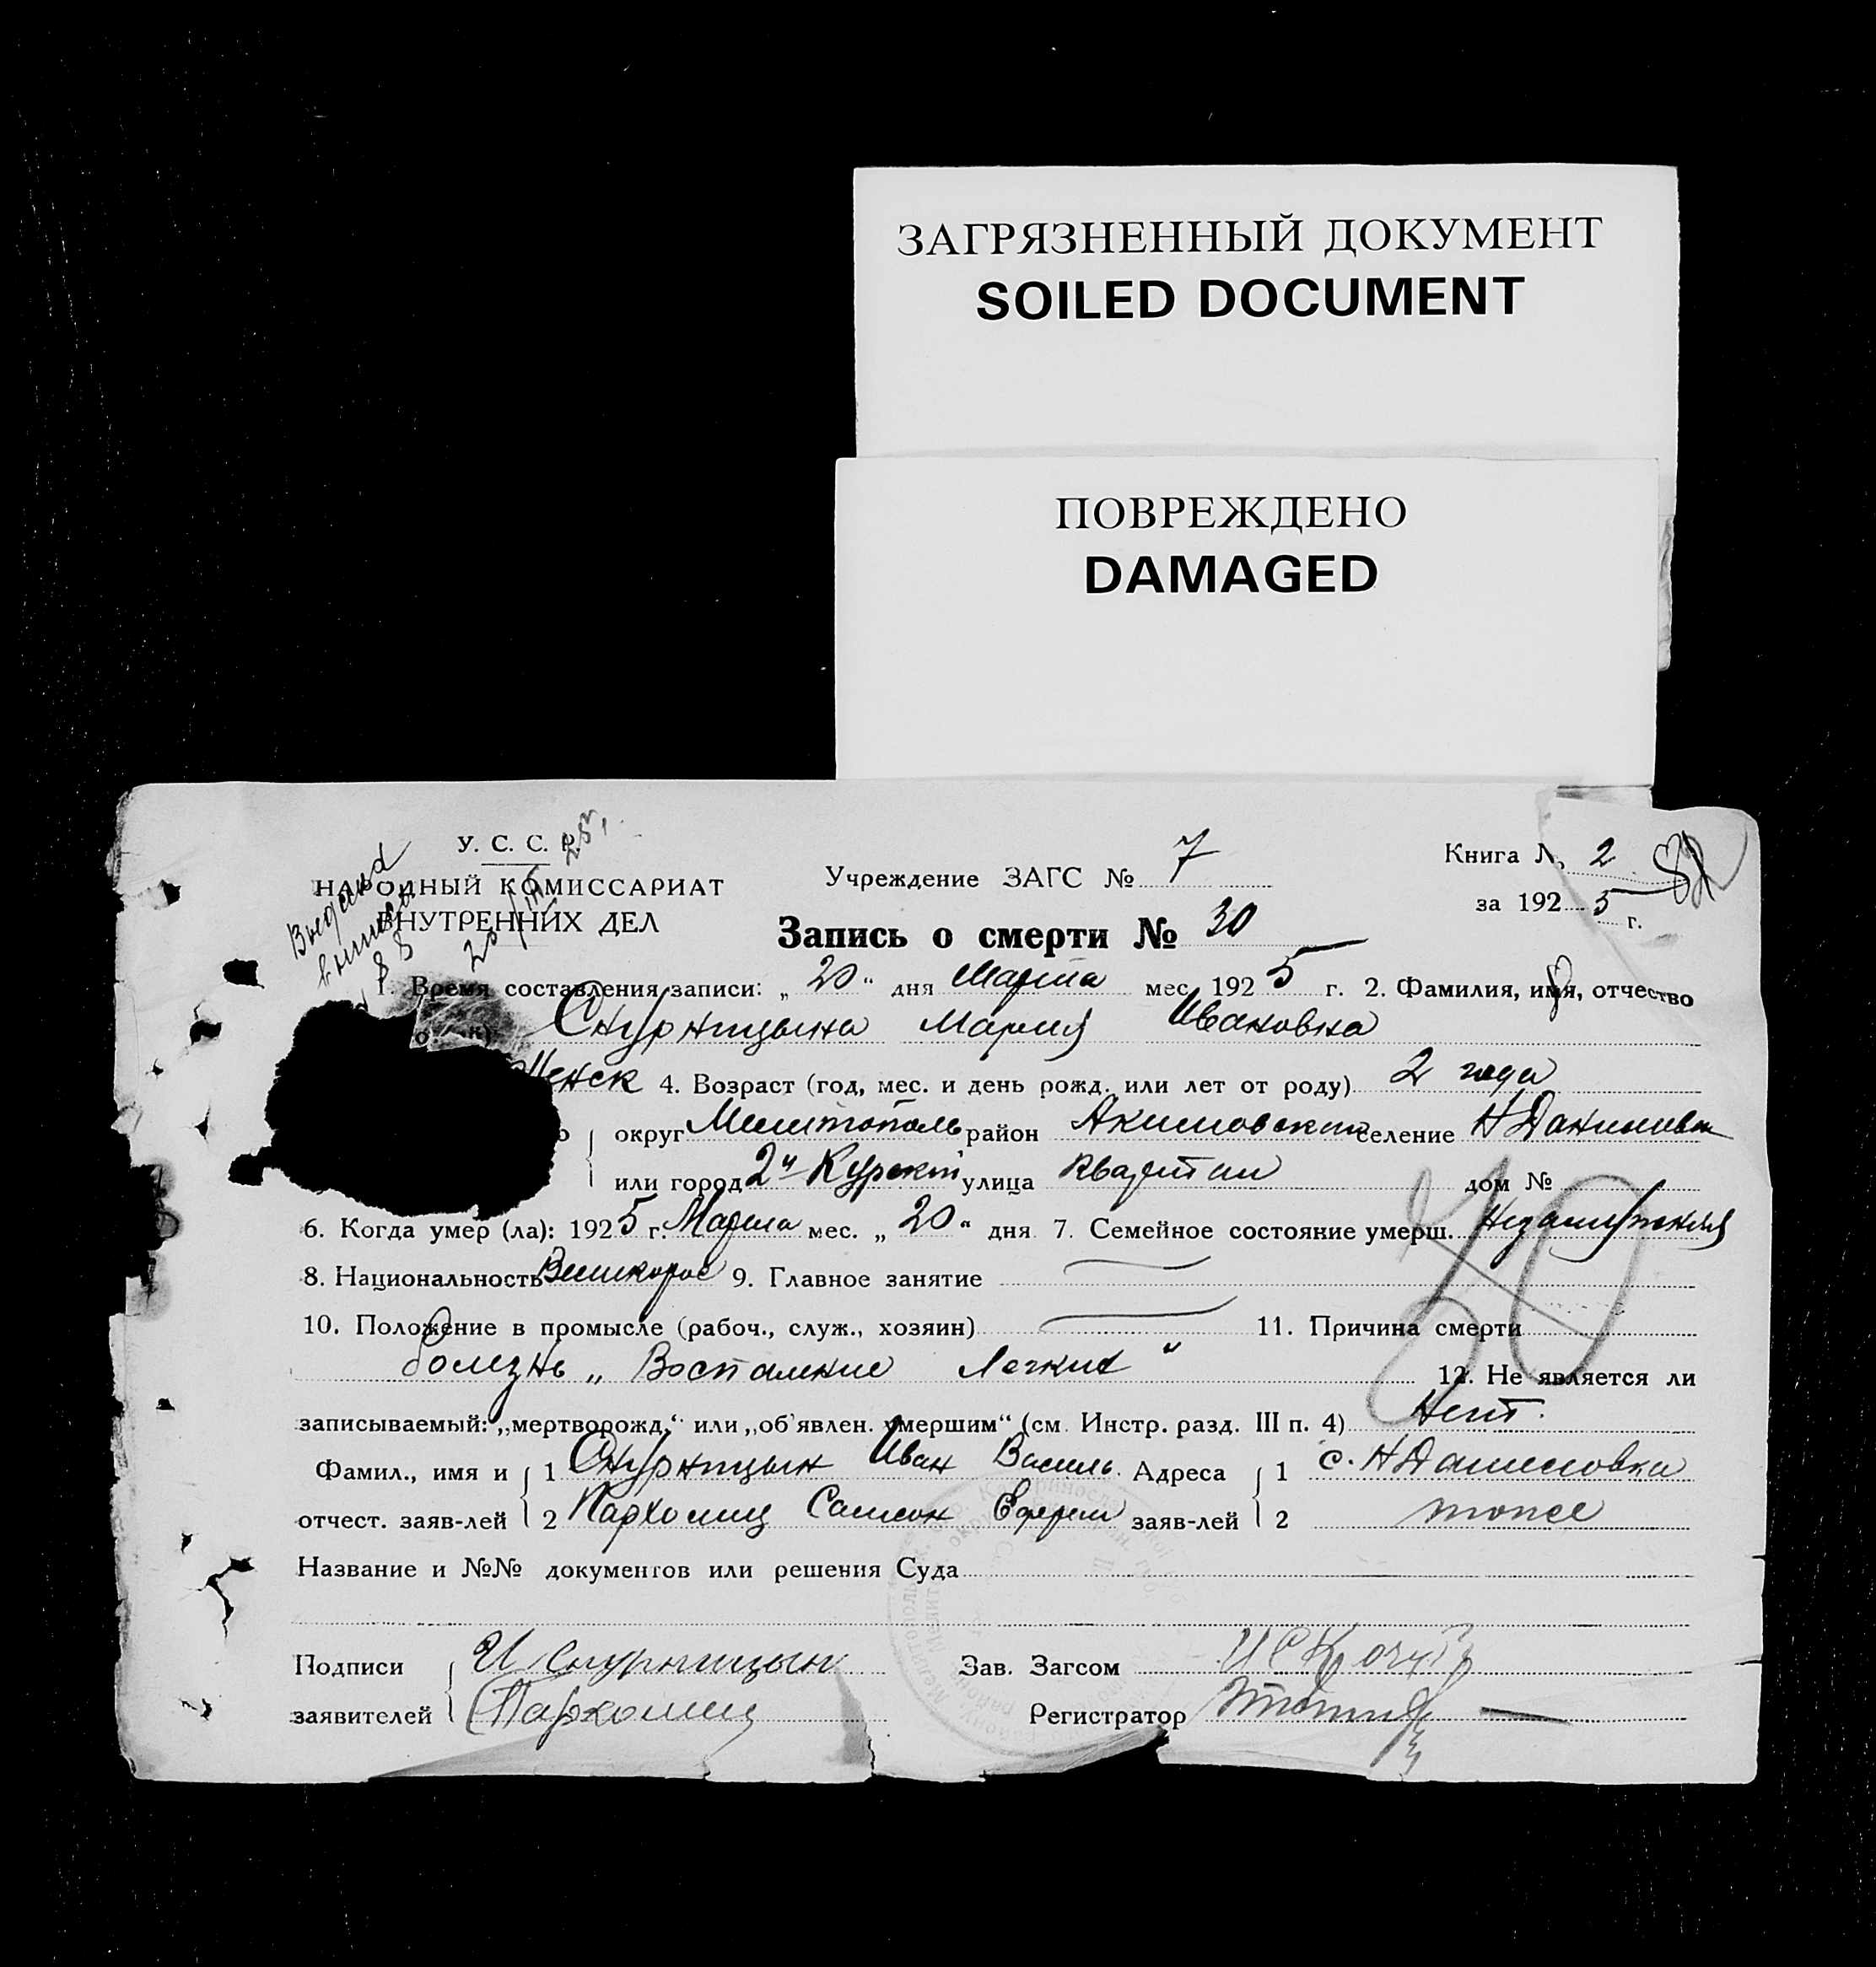 ЗАГРЯЗНЕННЫЙ ДОКУМЕНТ
SOILED DOCUMENT
ПОВРЕЖДЕНО
DAMAGED
У. С. С. Р.
НАРОДНЫЙ КОМИССАРИАТ
ВНУТРЕННИХ ДЕЛ
Учреждение ЗАГС № 7
Книга № 2
за 1925 г.
82
Запись о смерти № 30
1. Время составления записи: „20“ дня Марта мес. 1925 г. 2. Фамилия, имя, отчество
Снурницына Мария Ивановна
Женск 4. Возраст (год, мес. и день рожд. или лет от роду) 2 года
округ Мелитополь район Акимовский селение Н Даниловка
или город 2й Курский улица квартал дом №
6. Когда умер (ла): 1925 г. Марта мес. „20“ дня 7. Семейное состояние умерш.
8. Национальность Великорос 9. Главное занятие
10. Положение в промысле (рабоч., служ., хозяин) 11. Причина смерти
болезнь „Воспаление Легких“ 12. Не является ли
записываемый: „мертворожд.“ или „об'явлен. умершим“ (см. Инстр. разд. III п. 4) Нет.
Фамил., имя и 1 Снурницын Иван Василь. Адреса 1 с. Н Даниловка
отчест. заяв-лей 2 Пархомец Самсон Ефрем заяв-лей 2 тоже
Название и №№ документов или решения Суда
Подписи И Снурницын Зав. Загсом
заявителей Пархомец Регистратор